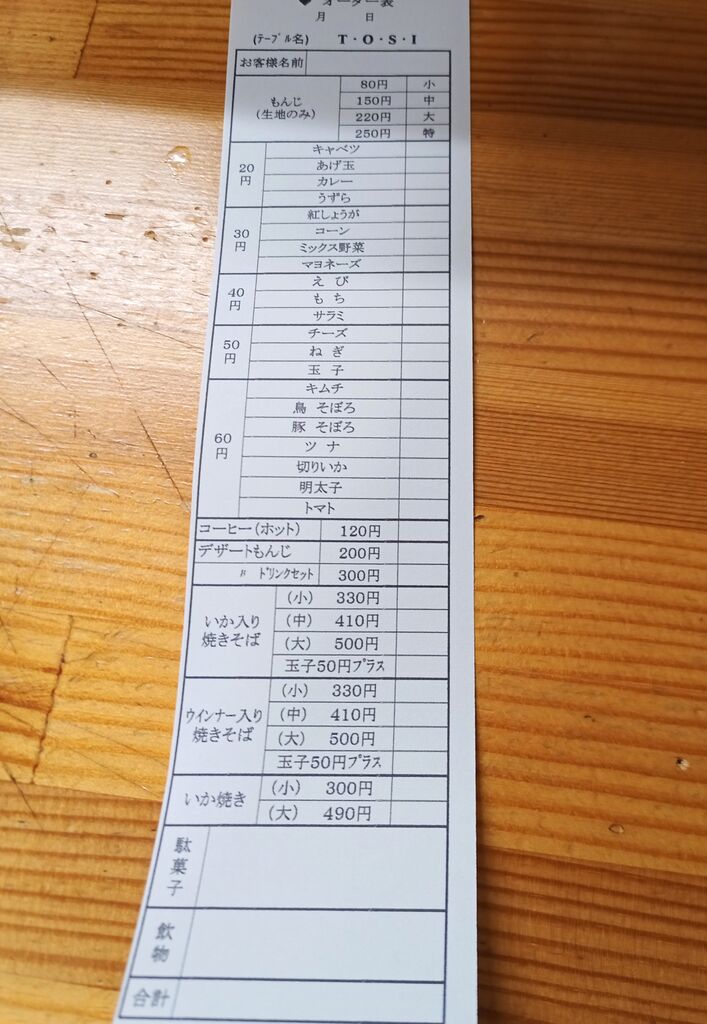 オーダー表
月 日
(ﾃｰﾌﾞﾙ名) T・O・S・I
お客様名前
もんじ
(生地のみ)
80円 小
150円 中
220円 大
250円 特
20円
キャベツ
あげ玉
カレー
うずら
30円
紅しょうが
コーン
ミックス野菜
マヨネーズ
40円
えび
もち
サラミ
50円
チーズ
ねぎ
玉子
60円
キムチ
鳥 そぼろ
豚 そぼろ
ツナ
切りいか
明太子
トマト
コーヒー(ホット) 120円
デザートもんじ 200円
〃 ﾄﾞﾘﾝｸｾｯﾄ 300円
いか入り
焼きそば
(小) 330円
(中) 410円
(大) 500円
玉子50円ﾌﾟﾗｽ
ウインナー入り
焼きそば
(小) 330円
(中) 410円
(大) 500円
玉子50円ﾌﾟﾗｽ
いか焼き
(小) 300円
(大) 490円
駄菓子
飲物
合計